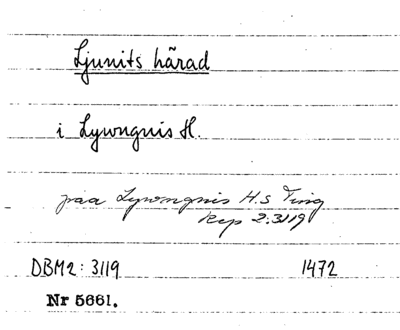 Ljunits härad
i Lywngnis H.
paa Lywngnis H.s Ting
Rep 2:3119
DBM2: 3119 1472
Nr 5661.